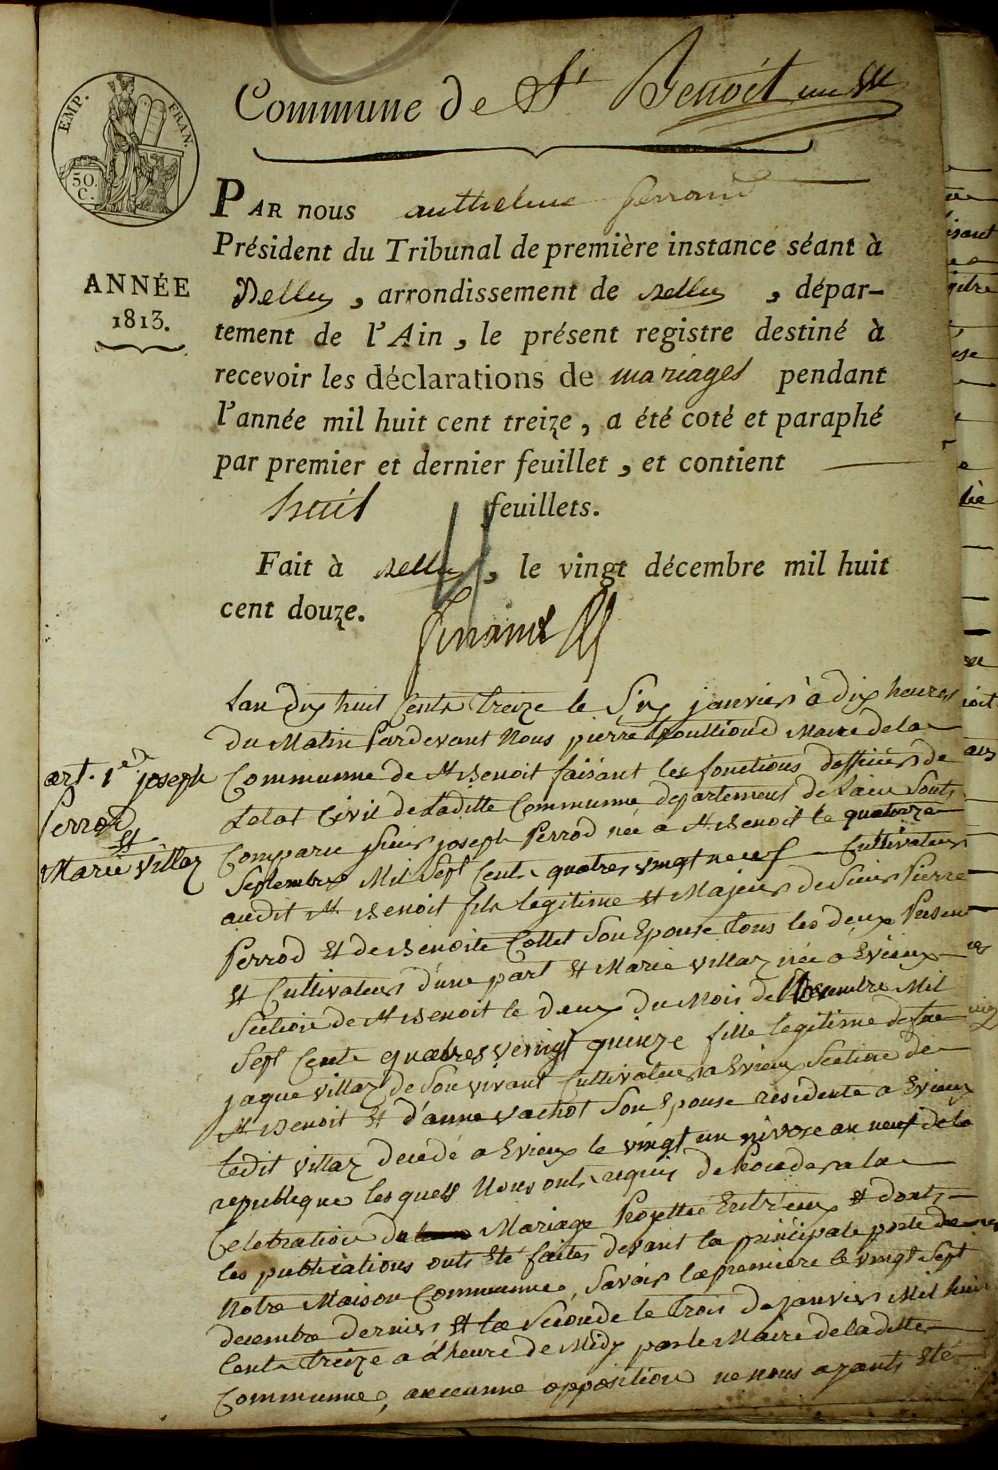 Commune de St Benoit
EMP. FRAN.
50. C.
ANNÉE
1813.
PAR nous anthelme ferrand
Président du Tribunal de première instance séant à
Belley, arrondissement de Belley, dépar-
tement de l'Ain, le présent registre destiné à
recevoir les déclarations de mariages pendant
l'année mil huit cent treize, a été coté et paraphé
par premier et dernier feuillet, et contient
huit feuillets.
Fait à Belley, le vingt décembre mil huit
cent douze.
ferrand
art. 1er joseph
perrod
et
Marie Villaz
Lan dix huit Cents treize le Six janvier à dix heures
du Matin Pardevant Nous pierre Maire de la
Communne de St Benoit faisant les fonctions dofficier de
Letat Civil de Laditte Communne departement de Lain Sont
Comparu Sieur joseph Perrod née a St Benoit le quatorze
Septembre Mil Sept Cents quatres vingt neuf Cultivateur
audit St Benoit fils legitime et Majeur de Sieur Pierre
Perrod et de Benoite Collet Son Epouse tous les deux Present
et Cultivateurs d'une part et Marie Villaz née a Evieux
Section de St Benoit le deux du Mois de Mil
Sept Cents quatres veingt quinze fille legitime de feu
jaque villaz de Son vivant Cultivateur a Evieux Section de
St Benoit et d'anne vachot Son Epouse residente a Evieux
ledit villaz decedé a Evieux le vingt un nivose an neuf de la
republique les quels Nous onts requis de Procedera la
Celebration du Mariage Projettée Entr'eux et donts
les publications onts Eté faites devant la principale porte de
Notre Maison Communne, Savoir la premiere le vingt Sept
decembre dernier et la Séconde le trois de janvier Mil huit
Cents treize a L'heure de Midy par le Maire de laditte
Communne, aucunne opposition ne nous ayants Eté